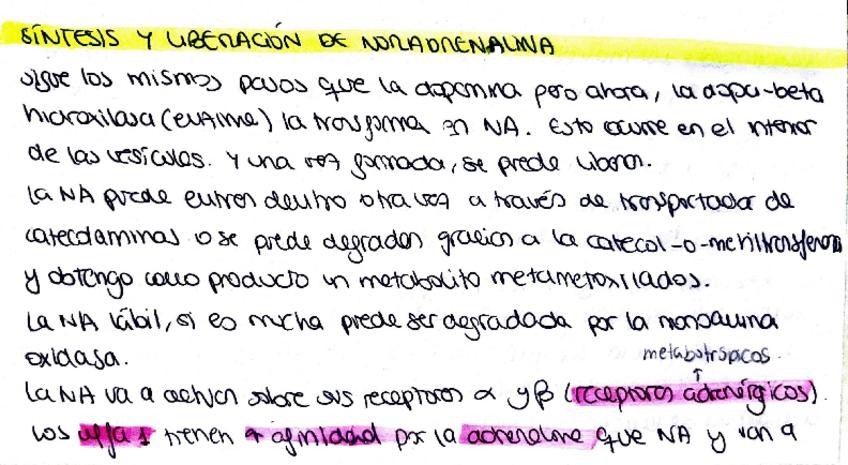 SÍNTESIS Y LIBERACIÓN DE NORADRENALINA
sigue los mismos pasos que la dopamina pero ahora, la dopa-beta
hidroxilasa (enzima) la transforma en NA. Esto ocurre en el interior
de las vesículas. Y una vez formada, se puede liberar.
La NA puede entrar dentro otra vez a través de transportador de
catecolaminas o se puede degradar gracias a la catecol-o-metiltransferasa
y obtengo como producto un metabolito metametoxilados.
La NA lábil, si es mucha puede ser degradada por la monoamina
oxidasa.
metabotrópicos.
La NA va a actuar sobre sus receptores α y β (receptores adrenérgicos).
Los alfa 1 tienen + afinidad por la adrenalina que NA y van a